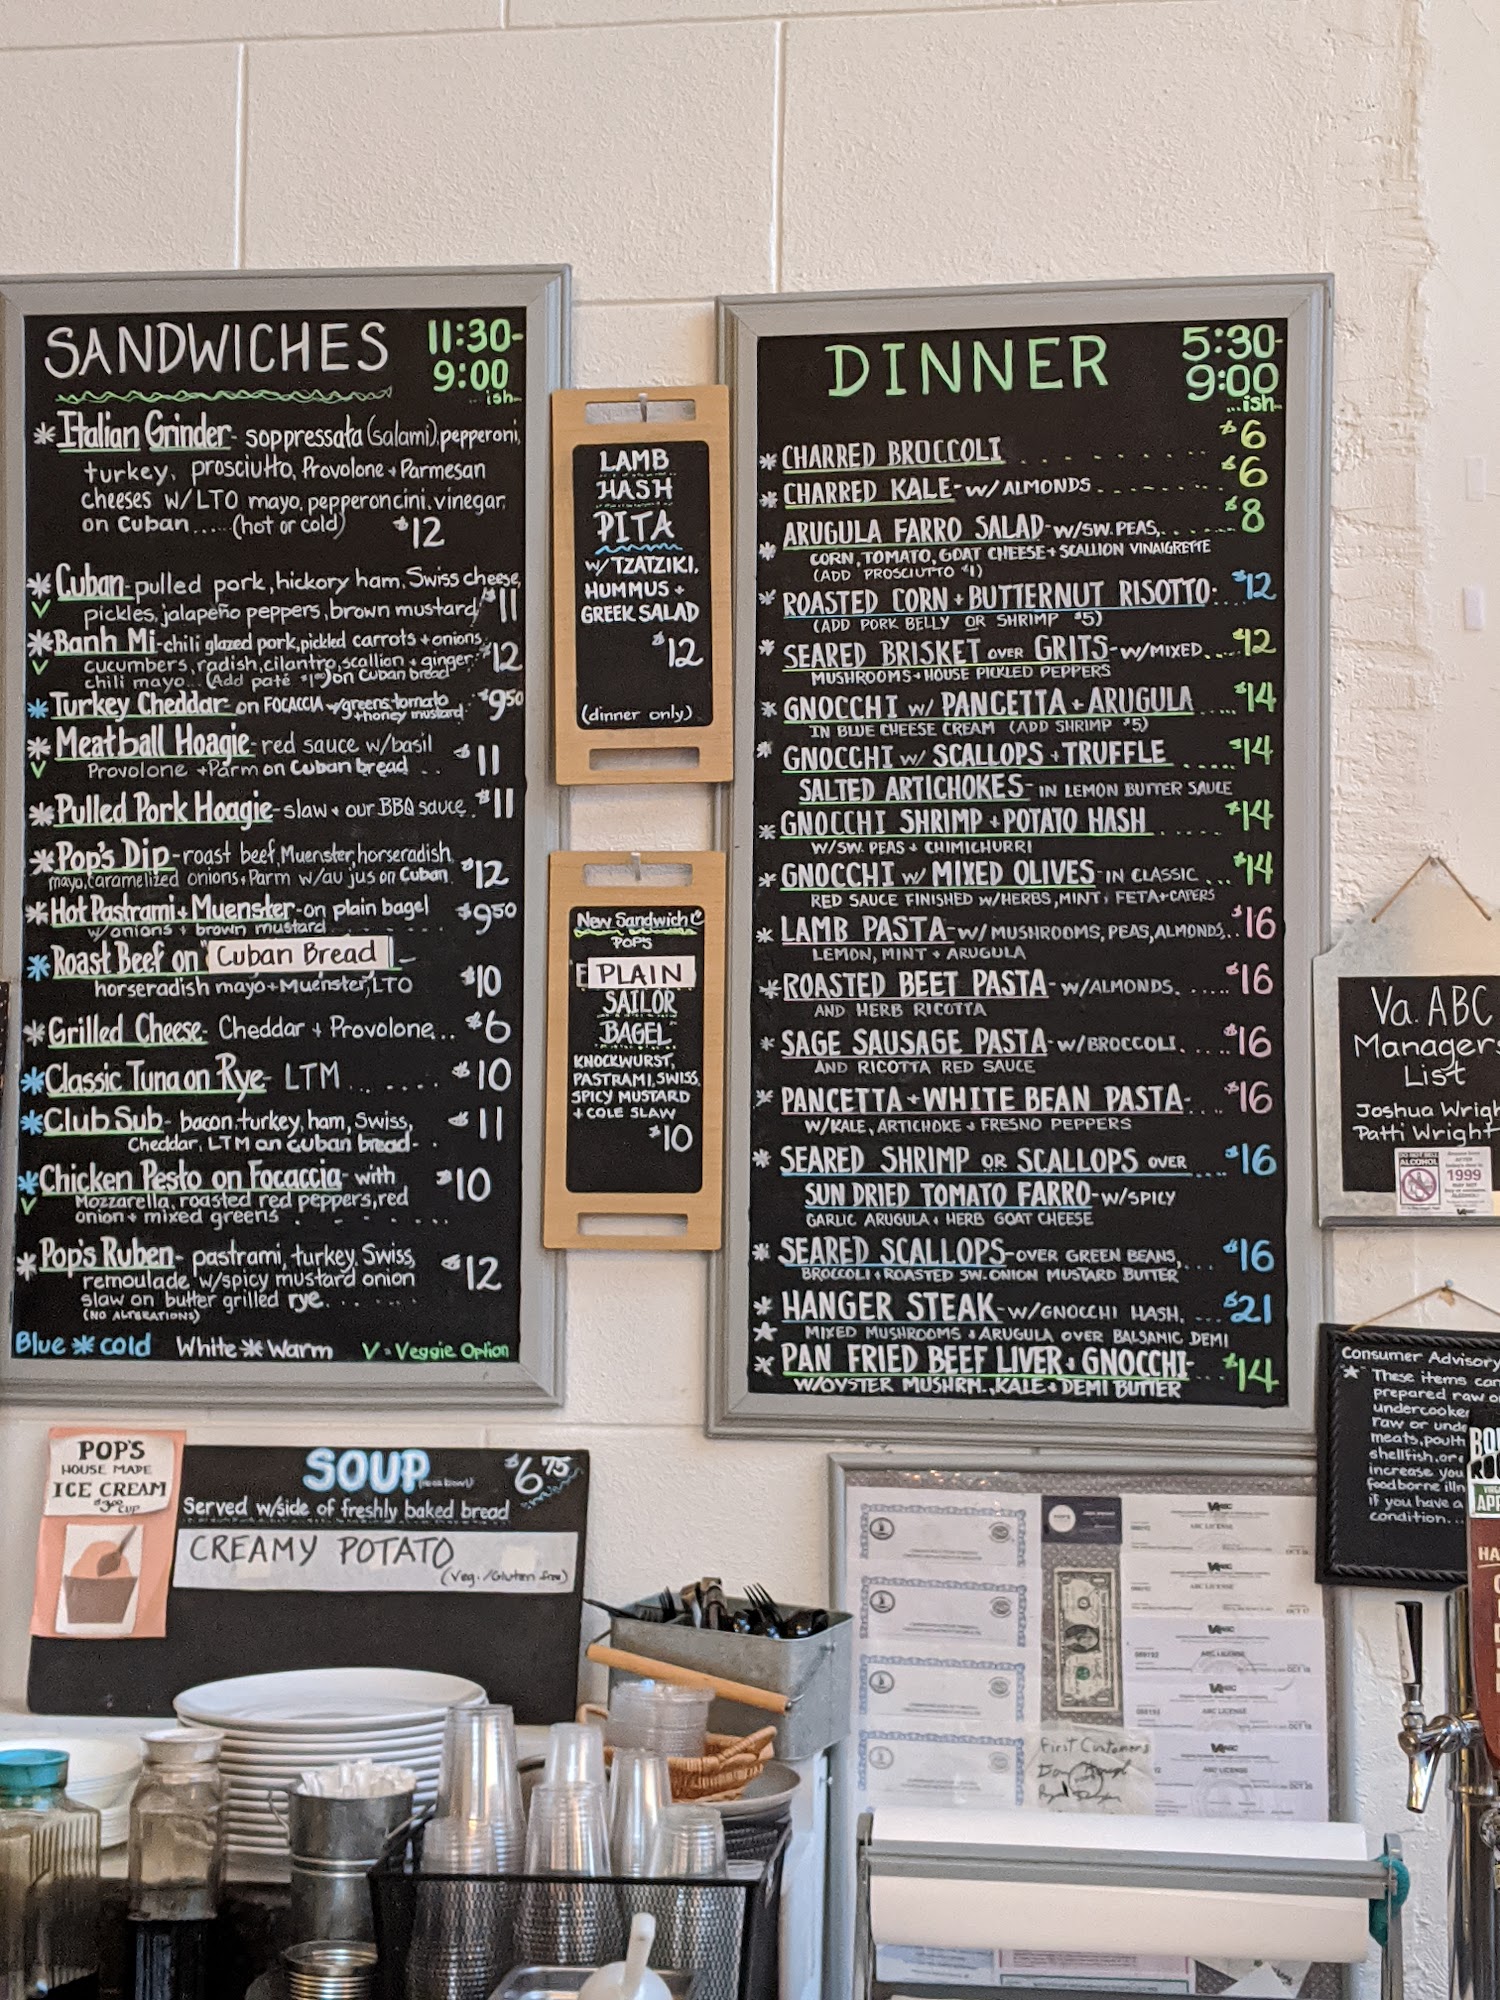 SANDWICHES 11:30-
9:00
...ish...
* Italian Grinder- soppressata (salami), pepperoni,
turkey, prosciutto, Provolone + Parmesan
cheeses w/LTO mayo, pepperoncini, vinegar,
on Cuban..... (hot or cold) $12
* Cuban- pulled pork, hickory ham, Swiss cheese,
V pickles, jalapeño peppers, brown mustard $11
* Banh Mi- chili glazed pork, pickled carrots + onions,
V cucumbers, radish, cilantro, scallion + ginger $12
chili mayo... (Add paté $1⁰⁰) on Cuban bread
* Turkey Cheddar- on FOCACCIA w/greens, tomato $9⁵⁰
+ honey mustard
* Meatball Hoagie- red sauce w/basil
V Provolone + Parm on Cuban bread .. $11
* Pulled Pork Hoagie- slaw + our BBQ sauce. $11
* Pop's Dip- roast beef, Muenster, horseradish
mayo, caramelized onions, Parm w/au jus on Cuban $12
* Hot Pastrami + Muenster- on plain bagel $9⁵⁰
w/onions + brown mustard
* Roast Beef on Cuban Bread -
horseradish mayo + Muenster, LTO $10
* Grilled Cheese- Cheddar + Provolone... $6
* Classic Tuna on Rye- LTM ........ $10
* Club Sub- bacon, turkey, ham, Swiss, $11
Cheddar, LTM on cuban bread-
* Chicken Pesto on Focaccia- with $10
V Mozzarella, roasted red peppers, red
onion + mixed greens . . . . . . .
* Pop's Ruben- pastrami, turkey, Swiss, $12
remoulade w/spicy mustard onion
slaw on butter grilled rye. . . . . .
(NO ALTERATIONS)
Blue * cold White * Warm V = Veggie Option
LAMB
HASH
PITA
w/ TZATZIKI,
HUMMUS +
GREEK SALAD
$12
(dinner only)
New Sandwich
POP'S
PLAIN
SAILOR
BAGEL
KNOCKWURST,
PASTRAMI, SWISS,
SPICY MUSTARD
+ COLE SLAW
$10
DINNER 5:30-
9:00
...ish...
* CHARRED BROCCOLI . . . . . . . . $6
* CHARRED KALE- W/ ALMONDS. . . . . . . . $6
* ARUGULA FARRO SALAD- W/SW. PEAS,. . . . . $8
CORN, TOMATO, GOAT CHEESE + SCALLION VINAIGRETTE
(ADD PROSCIUTTO $1)
* ROASTED CORN + BUTTERNUT RISOTTO. $12
(ADD PORK BELLY OR SHRIMP $5)
* SEARED BRISKET OVER GRITS- W/MIXED.... $12
MUSHROOMS + HOUSE PICKLED PEPPERS
* GNOCCHI W/ PANCETTA + ARUGULA .... $14
IN BLUE CHEESE CREAM (ADD SHRIMP $5)
* GNOCCHI W/ SCALLOPS + TRUFFLE ..... $14
SALTED ARTICHOKES- IN LEMON BUTTER SAUCE
* GNOCCHI SHRIMP + POTATO HASH ..... $14
W/SW. PEAS + CHIMICHURRI
* GNOCCHI W/ MIXED OLIVES- IN CLASSIC ... $14
RED SAUCE FINISHED W/HERBS, MINT, FETA + CAPERS
* LAMB PASTA- W/ MUSHROOMS, PEAS, ALMONDS,.. $16
LEMON, MINT + ARUGULA
* ROASTED BEET PASTA- W/ALMONDS...... $16
AND HERB RICOTTA
* SAGE SAUSAGE PASTA- W/BROCCOLI..... $16
AND RICOTTA RED SAUCE
* PANCETTA + WHITE BEAN PASTA-.... $16
W/KALE, ARTICHOKE + FRESNO PEPPERS
* SEARED SHRIMP OR SCALLOPS OVER .... $16
SUN DRIED TOMATO FARRO- W/SPICY
GARLIC ARUGULA + HERB GOAT CHEESE
* SEARED SCALLOPS- OVER GREEN BEANS, $16
BROCCOLI + ROASTED SW. ONION MUSTARD BUTTER
* HANGER STEAK- W/GNOCCHI HASH, $21
★ MIXED MUSHROOMS + ARUGULA OVER BALSAMIC DEMI
* PAN FRIED BEEF LIVER + GNOCCHI- $14
W/OYSTER MUSHRM., KALE + DEMI BUTTER
Va. ABC
Managers
List
Joshua Wrigh
Patti Wright
DO NOT SELL
ALCOHOL
1999
Consumer Advisory
★ These items can
prepared raw o
undercooke
raw or unde
meats, poult
shellfish, or
increase you
foodborne illn
if you have a
condition...
POP'S
HOUSE MADE
ICE CREAM
$3⁰⁰ cup
SOUP $6⁷⁵
Served w/side of freshly baked bread
CREAMY POTATO
(Veg./Gluten free)
ABC LICENSE
ABC LICENSE
ABC LICENSE
ABC LICENSE
First Customers